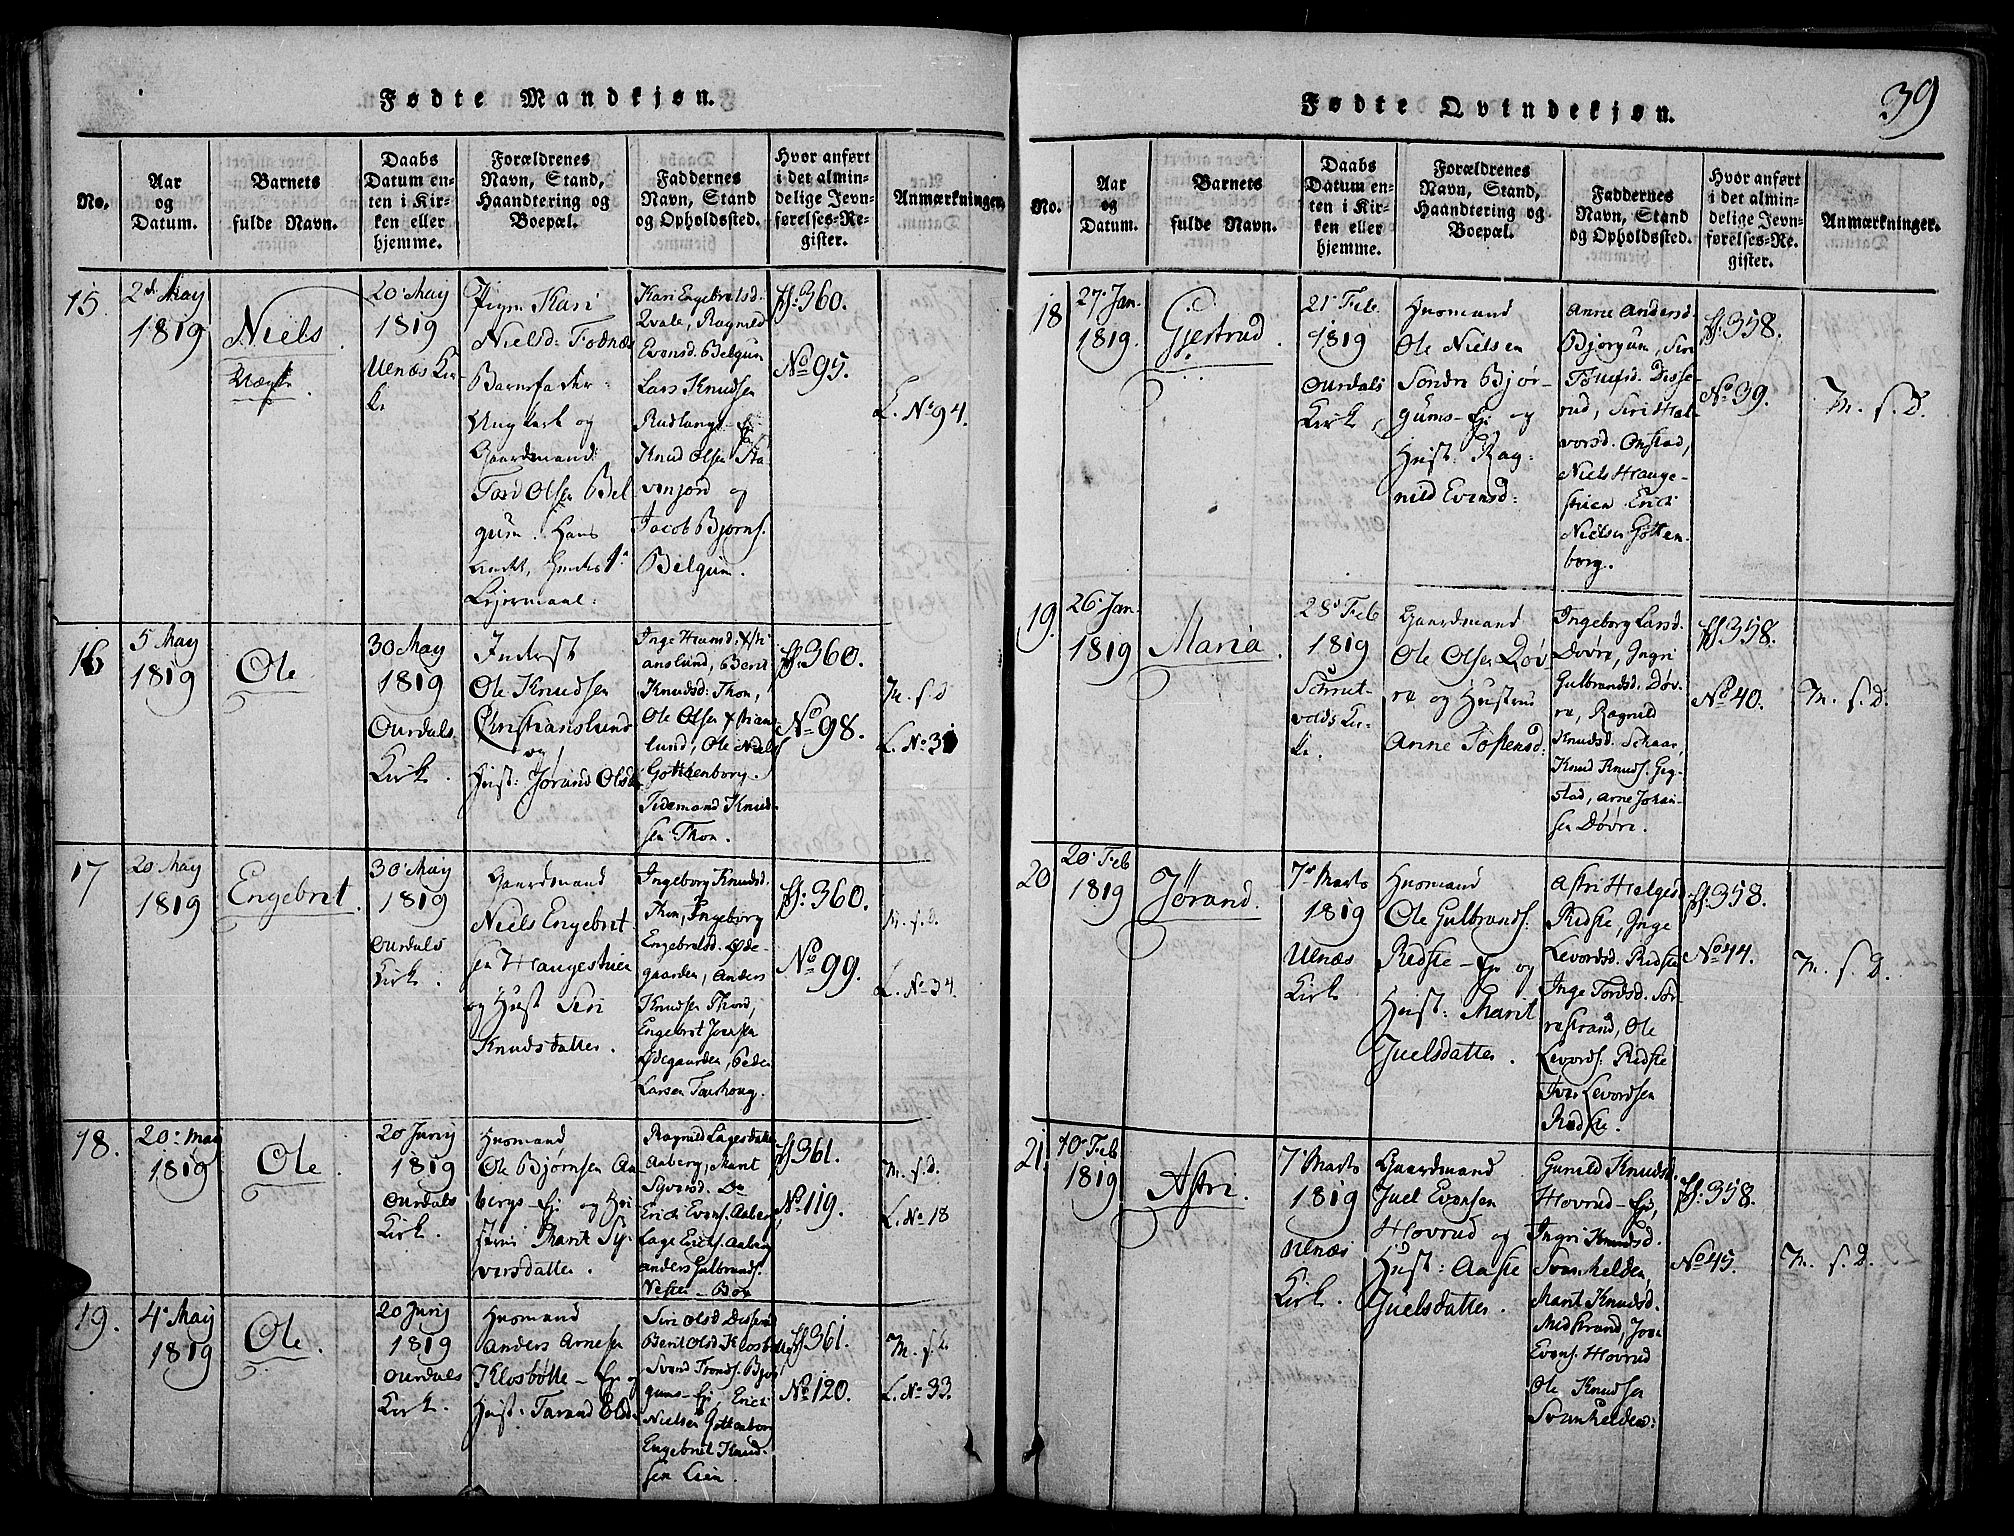 Fødte Mandkjøn.
No.
Aar
og
Datum.
Barnets
fulde Navn.
Daabs
Datum en-
ten i Kir-
ken eller
hjemme.
Forældrenes
Navn, Stand,
Haandtering og
Boepæl.
Faddernes
Navn, Stand
og Opholdssted.
Hvor anført
i det almin-
delige Jevn-
førelses-Re-
gister.
Anmærkninger
15.
2d May
1819
Niels
20 May
1819
Ulnæs Kir-
k.
Pigen Kari
Nielsd: Fodnæs
Barnefader:
Ungkarl og
Gaardmand:
Tord Olsen Bel
gum. Hans
Leiermaal:
Kari Engebretsd.
Qvale, Ragnild
Evensd. Belgum
Lars Knudsen
Rudlangs-Ej
Knud Olsen Sta-
venjord og
Jacob Bjørns.
Belgum.
ff: 360.
No 95.
L. No 94.
16
5 May
1819
Ole
30 May
1819
Ourdals
Kirk.
Inderst
Ole Knudsen
Christianslund
og
Hust: Jørand Olsd
anslund, Berit
Knudsd: Thon,
Ole Olsen Xstians
lund, Ole Niels
Gottenborg.
Tidemand Knud-
sen Thon.
ff: 360.
No 98.
M. s. D
L. No 31
17
20 May
1819
Engebret.
30 May
1819
Ourdals
Kirk.
Gaardmand
Niels Engebret
sen Haugestuen
og Hust Siri
Knudsdatter.
Ingeborg Knudsd.
Thon, Ingeborg
Engebretsd. Øde-
gaarden, Anders
Knudsen Thon,
Engebret Iversen
Ødegaarden, Peder
Larsen Fouskoug.
ff: 360.
No 99.
M. s. D.
L. No 34.
18.
20 May
1819
Ole.
20 Junij
1819
Ourdals
Kirk.
Husmand
Ole Bjørnsen Aa
bergs-Ej og Hu
strue Marit Sy-
versdatter.
Ragnild Lagesdatter
Aaberg, Marit
Syversd. Do
Erich Evens. Aaberg
Lage Erichs. Aaberg
Anders Gulbrands.
Nesten-Bøe
ff 361.
No 119.
M. s. D.
L. No 18
19.
4 May
1819
Ole.
20 Junij
1819
Ourdals
Kirk.
Husmand
Anders Arnesen
Klosbøtte-Ej og
Hust: Tarand Olsd
Siri Olsd Disserud
Berit Olsd Klosbøtte
Svend Tronds. Bjør
gums-Ej, Erich
Nielsen Gottenborg
Engebret Knud-
sen Lien.
ff 361.
No 120.
M. s. D.
L. No 33.
39
Fødte Qvindekjøn.
No.
Aar
og
Datum.
Barnets
fulde Navn.
Daabs
Datum en-
ten i Kir-
ken eller
hjemme.
Forældrenes
Navn, Stand,
Haandtering og
Boepæl.
Faddernes
Navn, Stand
og Opholdssted.
Hvor anført
i det almin-
delige Jevn-
førelses-Re-
gister.
Anmærkninger.
18
27 Jan
1819.
Gjertrud.
21 Feb
1819
Ourdals
Kirk.
Husmand
Ole Nielsen
Søndre Bjør-
gums-Ej og
Hust: Rag-
nild Evensd:
Anne Andersd
Bjørgum, Siri
Disse-
rud, Siri Hal
vorsd. Onstad,
Niels Hauge-
stuen Erich
Nielsen Gotten
borg.
ff: 358.
No 39.
M. s. D.
19.
26 Jan
1819
Maria.
28 Feb
1819
Schrut-
volds Kir-
k.
Gaardmand
Ole Olsen Døv
re og Hustrue
Anne Tostensd:
Ingeborg Larsd.
Døvre, Ingri
Gulbrandsd. Døv-
re, Ragnild
Knudsd. Schaar,
Knud Knuds. Gig-
stad, Arne Johan-
sen Døvre.
ff: 358.
No 40.
M. s. D.
20
20 Feb
1819
Jørand.
7 Marts
1819
Ulnæs
Kirk.
Husmand
Ole Gulbrands:
Ridste-Ej og
Hust: Marit
Juelsdatter.
Astri Helgesd
Ridste, Inge
Levordsd. Ridste
Inge Tordsd. Sør-
restrand, Ole
Levords: Ridste
Iver Levordsen
Ridste.
ff: 358.
No 44.
M. s. D.
21.
10 Feb
1819
Astri.
7 Marts
1819
Ulnæs
Kirk.
Gaardmand
Juel Evensen
Hovrud og
Hust: Aaste
Juelsdatter.
Gunild Knudsd.
Hovrud-Ej,
Ingri Knudsd.
Svanhelden,
Marit Knudsd.
Midstrand, Joen
Evens. Hovrud
Ole Knudsen
Svanhelden:
ff: 358.
No 45.
M. s. D.